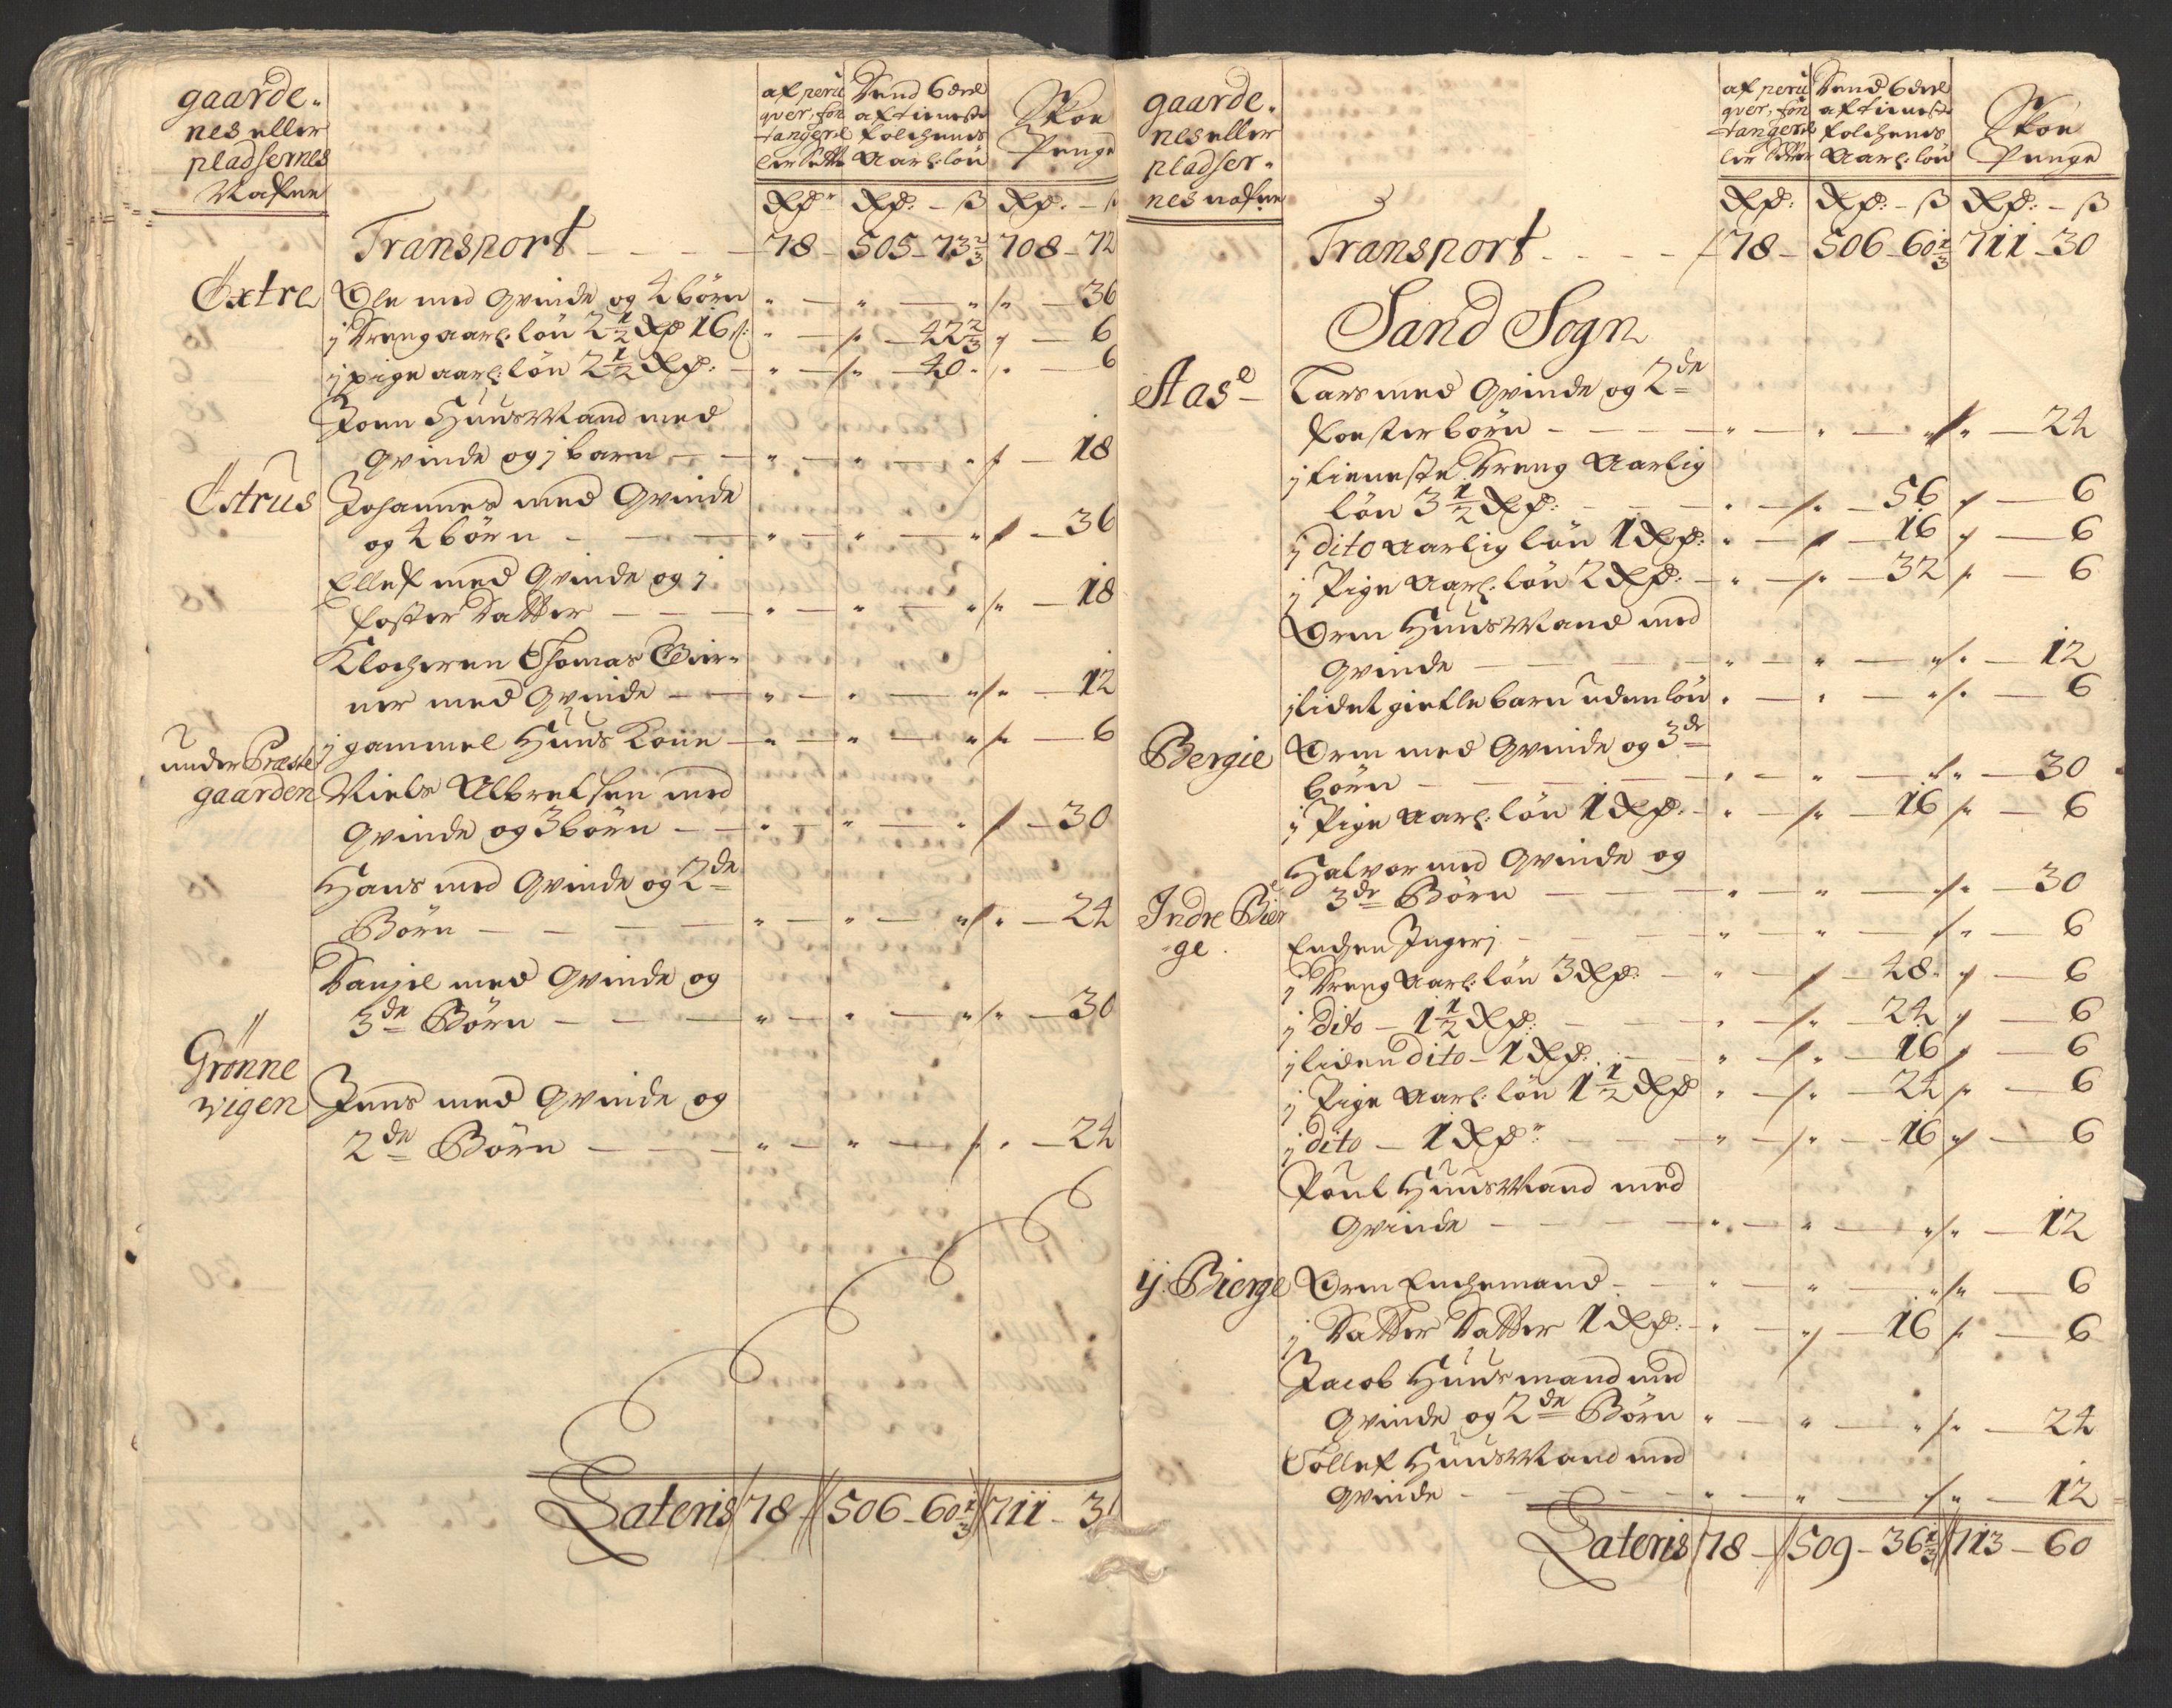 gaarde-
nes eller
pladsernes
Nafne
af peru
qver, fon
tanger el
ler Sette
Samd 6 deel
aftieneste
folchenes
Aarl: løn
Skoe
Penge
Rd Rd: - ß Rd. - ß
Transport - - - 78 - 505 - 73 2/3 708 - 72
Extre Ole med Qvinde og 4 børn " - " - " - 36
j Dreng aarl: løn 2 1/2 Rd 16 ß: " - " - 42 2/3 " - 6
j pige aarl: løn 2 1/2 Rd: - " - " - 40 " - 6
Joen Huus Mand med
Qvinde og j barn - - " - " - " - 18
Østrus Johannes med Qvinde
og 4 børn - - - " - " - " - 36
Ellef med Qvinde og j
foster Datter - - - " - " - " - 18
Klocheren Thomas Wer-
ner med Qvinde - - " - " - " - 12
under Præste j gammel Huus Kone - " - " - " - 6
gaarden Niels Albretsen med
Qvinde og 3 børn - - " - " - " - 30
Hans med Qvinde og 2de
Børn - - - - " - " - " - 24
Daniel med Qvinde og
3de Børn - - - " - " - " - 30
Grønne
vigen Jens med Qvinde og
2de Børn - - - " - " - " - 24
Lateris 78 - 506 - 60 1/3 711 - 3
gaarde-
nes eller
pladser-
nes nafne
af peru
qver, fon
tanger el
ler Sette
Samd 6 deel
aftieneste
folchenes
Aarl: løn
Skoe
Penge
Rd: Rd: - ß Rd: - ß
Transport - - - - 78 - 506 - 60 1/3 711 - 30
Sand Sogn
Aas Lars med Qvinde og 2de
foesterbörn - - - - " - " - " - 24
j tieneste Dreng Aarlig
løn 3 1/2 Rd: - - - " - " - 56 " - 6
j dito aarlig løn 1 Rd: " - " - 16 " - 6
j Pige Aarl: løn 2 Rd: - " - " - 32 " - 6
Orm Huus Mand med
Qvinde - - - - - " - " - " - 12
j lidet gietle barn uden løn " - " - " - 6
Bergie Orm med Qvinde og 3de
börn - - - - - " - " - " - 30
j Pige Aarl: løn 1 Rd: - " - " - 16 " - 6
Halvor med Qvinde og
3de Børn - - - - " - " - " - 30
Indre Bier
-ge. Enchen Ingerj - - - " - " - " - 6
j Dreng Aarl: løn 3 Rd: - " - " - 48 " - 6
j dito - 1 1/2 Rd: - - - " - " - 24 " - 6
j liden dito - 1 Rd: - - " - " - 16 " - 6
j Pige Aarl: løn 1 1/2 Rd " - " - 24 " - 6
j dito - 1 Rd: - - - " - " - 16 " - 6
Poul Huus Mand med
Qvinde - - - - - " - " - " - 12
y: Bierge Orm Enchemand - - " - " - " - 6
j Datter Datter 1 Rd: - " - " - 16 " - 6
Jacob Huusmand med
Qvinde og 2de Børn " - " - " - 24
Tollef Huus Mand med
Qvinde - - - - - " - " - " - 12
Lateris 78 - 509 - 36 1/3 713 - 60